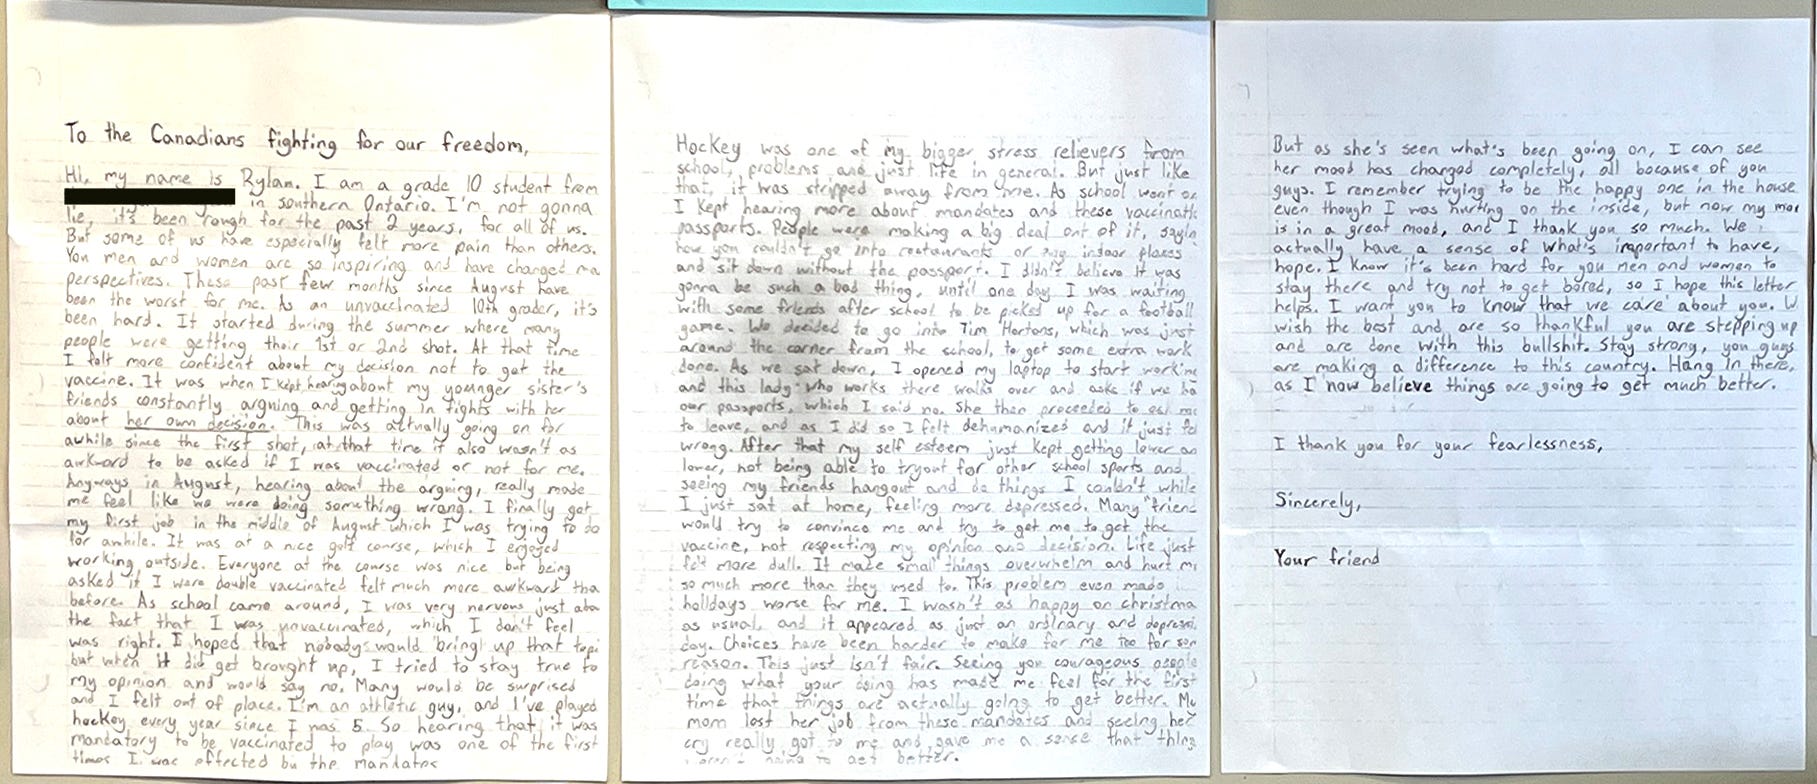 To the Canadians fighting for our freedom,
Hi, my name is Rylan. I am a grade 10 student from
in southern Ontario. I'm not gonna
lie, it's been rough for the past 2 years, for all of us.
But some of us have especially felt more pain than others.
You men and women are so inspiring and have changed ma
perspectives. These past few months since August have
been the worst for me. As an unvaccinated 10th grader, it's
been hard. It started during the summer where many
people were getting their 1st or 2nd shot. At that time
I felt more confident about my decision not to get the
vaccine. It was when I kept hearing about my younger sister's
friends constantly arguing and getting in fights with her
about her own decision. This was actually going on for
awhile since the first shot, at that time it also wasn't as
awkward to be asked if I was vaccinated or not for me.
Anyways in August, hearing about the arguing, really made
me feel like we were doing something wrong. I finally got
my first job in the middle of August which I was trying to do
for awhile. It was at a nice golf course, which I enjoyed
working outside. Everyone at the course was nice but being
asked if I were double vaccinated felt much more awkward tha
before. As school came around, I was very nervous just abou
the fact that I was unvaccinated, which I don't feel
was right. I hoped that nobody would bring up that topi
but when it did get brought up, I tried to stay true to
my opinion and would say no. Many would be surprised
and I felt out of place. I'm an athletic guy, and I've played
hockey every year since I was 5. So hearing that it was
mandatory to be vaccinated to play was one of the first
times I was effected by the mandates
Hockey was one of my bigger stress relievers from
school, problems and just life in general. But just like
that, it was stripped away from me. As school went on
I kept hearing more about mandates and these vaccinati
passports. People were making a big deal out of it, sayin
how you couldn't go into restaurants or any indoor places
and sit down without the passport. I didn't believe it was
gonna be such a bad thing, until one day I was waiting
with some friends after school to be picked up for a football
game. We decided to go into Tim Hortons, which was just
around the corner from the school, to get some extra work
done. As we sat down, I opened my laptop to start workin
and this lady who works there walks over and asks if we ha
our passports, which I said no. She then proceeded to ask me
to leave, and as I did so I felt dehumanized and it just fel
wrong. After that my self esteem just kept getting lower an
lower, not being able to tryout for other school sports and
seeing my friends hangout and do things I couldn't while
I just sat at home, feeling more depressed. Many "friend
would try to convince me and try to get me to get the
vaccine, not respecting my opinion and decision. Life just
felt more dull. It made small things overwhelm and hurt me
so much more than they used to. This problem even made
holidays worse for me. I wasn't as happy on christma
as usual, and it appeared as just an ordinary and depressi
day. Choices have been harder to make for me too for som
reason. This just isn't fair. Seeing you courageous people
doing what your doing has made me feel for the first
time that things are actually going to get better. My
mom lost her job from these mandates and seeing her
cry really got to me and gave me a sense that thing
going to get better.
But as she's seen what's been going on, I can see
her mood has changed completely, all bocause of you
guys. I remember trying to be the happy one in the house
even though I was hurting on the inside, but now my mo
is in a great mood, and I thank you so much. We
actually have a sense of what's important to have,
hope. I know it's been hard for you men and women to
stay there and try not to get bored, so I hope this letter
helps. I want you to know that we care about you. W
wish the best and are so thankful you are stepping up
and are done with this bullshit. Stay strong, you guys
are making a difference to this country. Hang in there,
as I now believe things are going to get much better.
I thank you for your fearlessness,
Sincerely,
Your friend